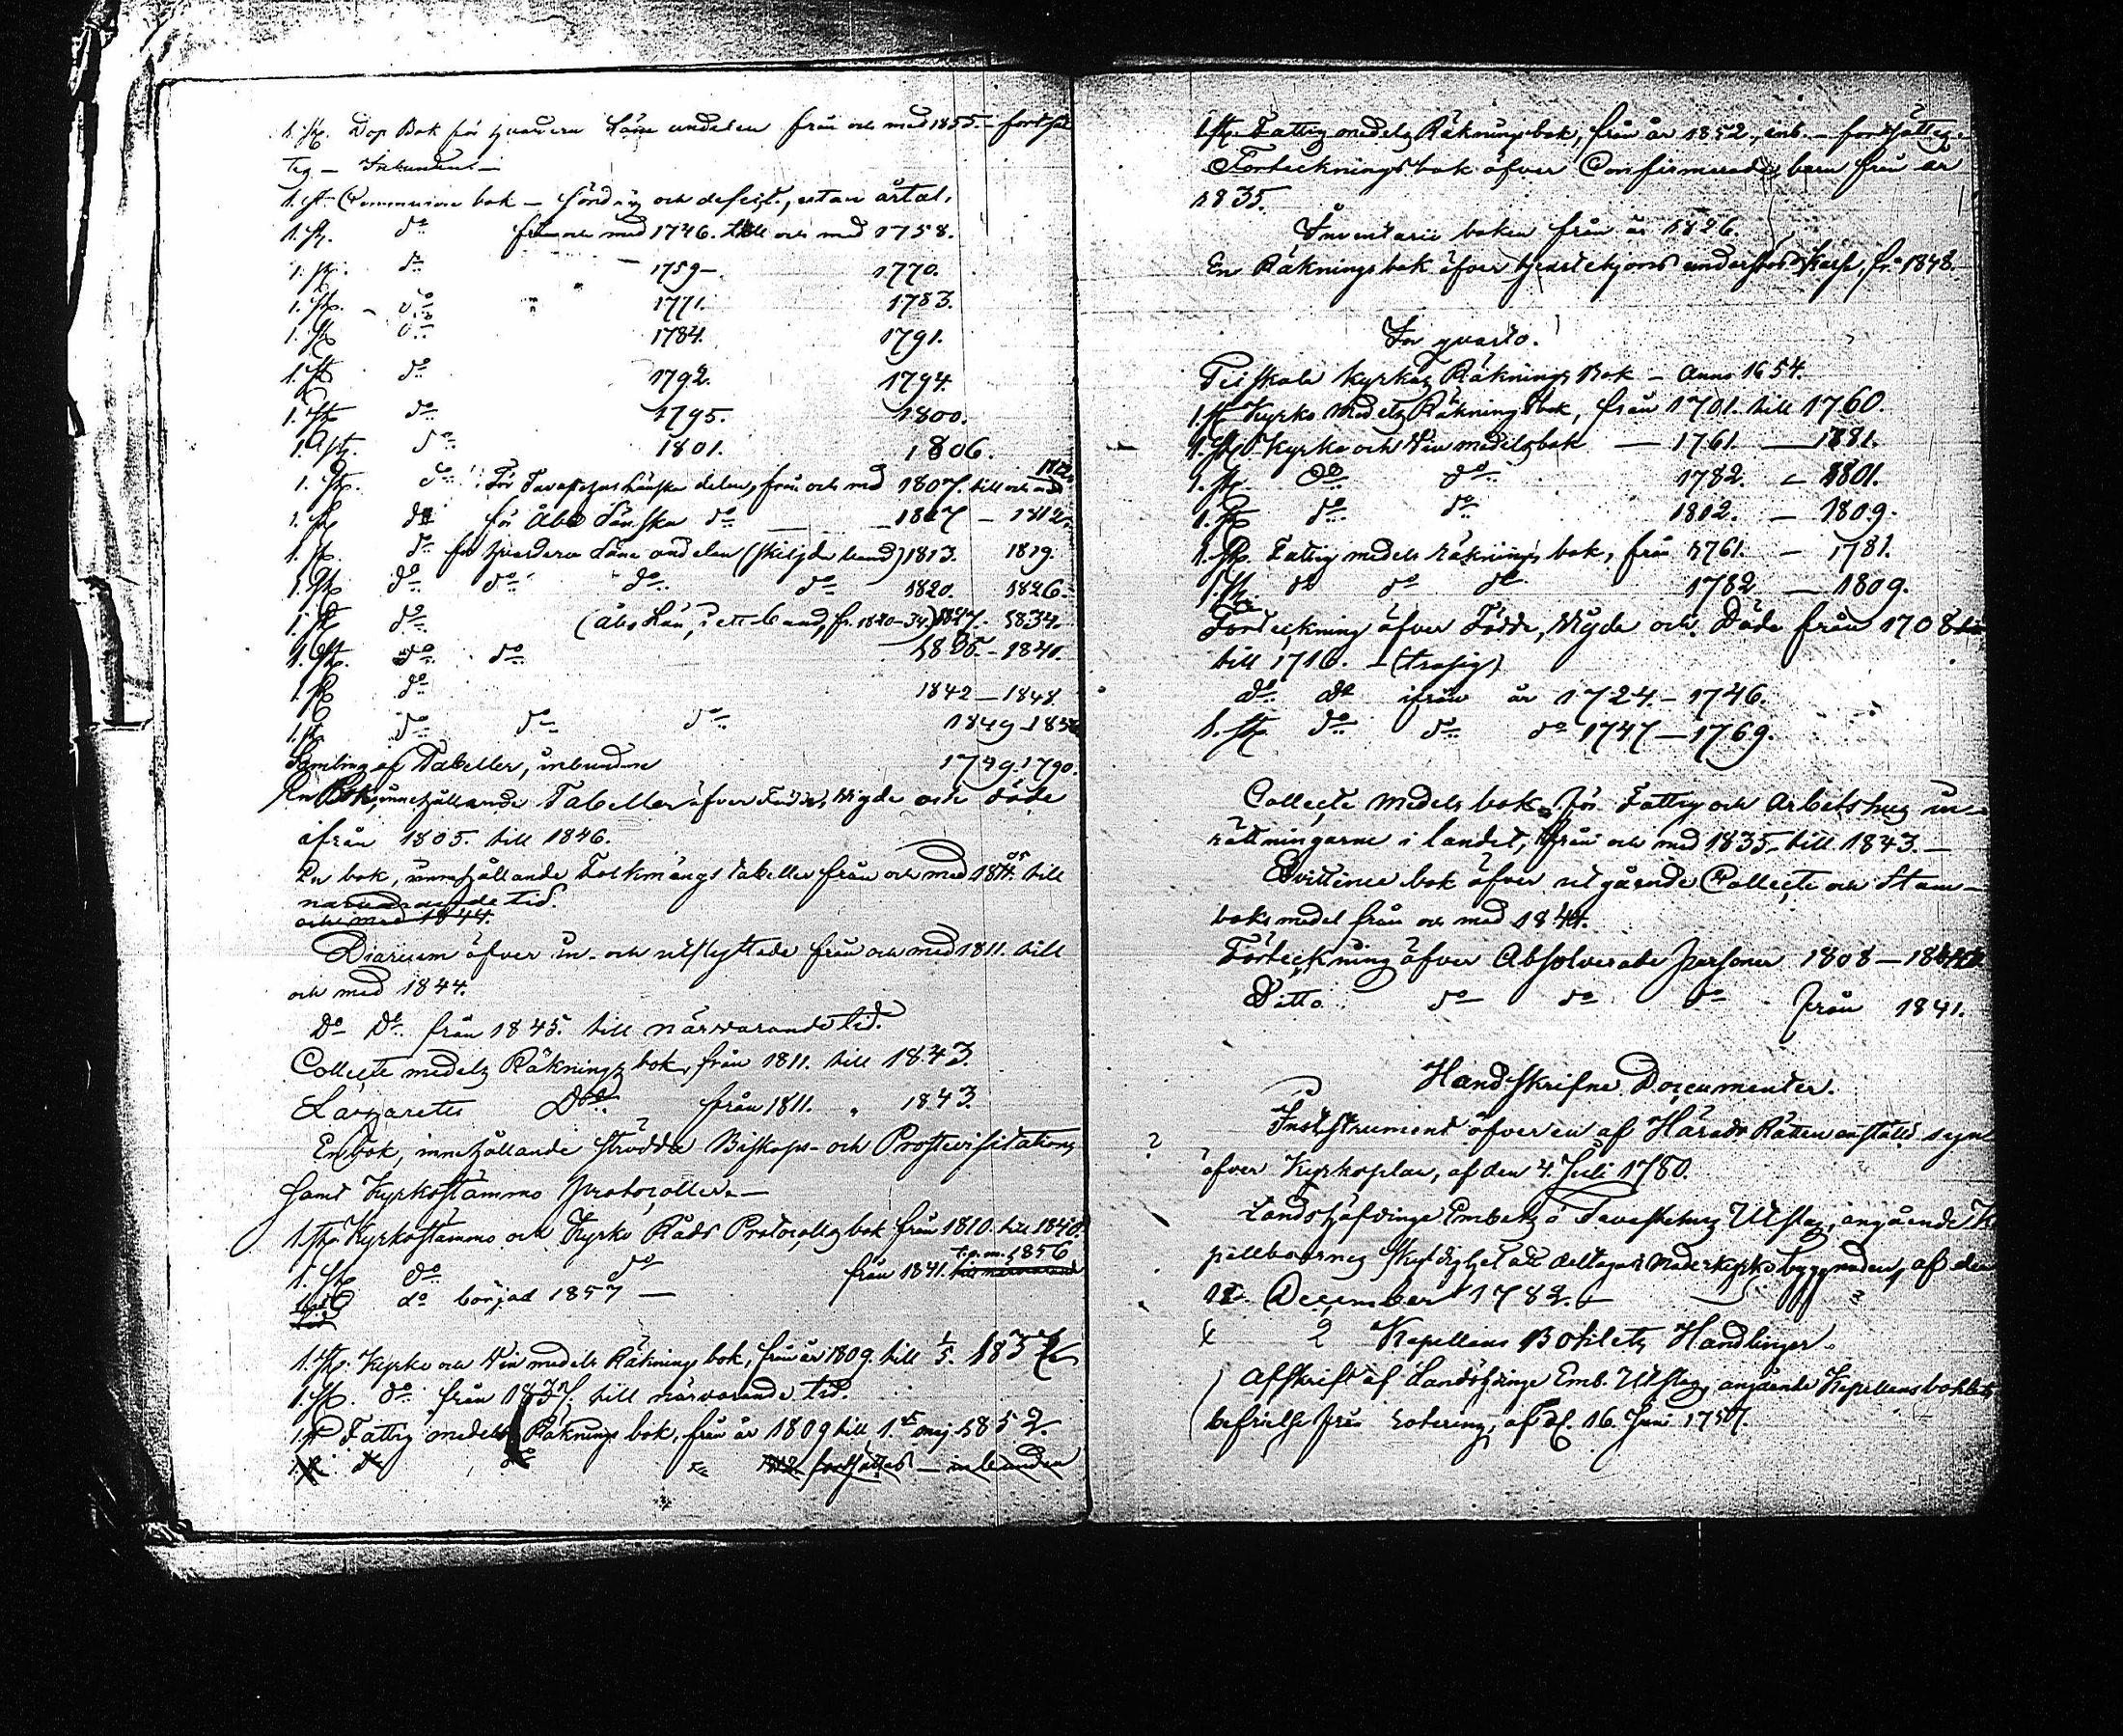 1. st. Dop Bok för hvardera Läne andelen från och med 1855. – fortsät
tes – Inbunden –
1. st. Communion bok – söndrig och defect, utan årtal.
1. st. do från och med 1746. till och med 1758.
1. st. do 1759 – 1770.
1. st. do 1771. 1783.
1. st. do 1784. 1791.
1. st. do 1792. 1794.
1. st. do 1795. 1800.
1. st. do 1801. 1806.
1. st. do För Tavastehus Länska delen, från och med 1807. till och med 1812
1. st. do för Åbo Länska do – 1807 – 1812.
1. st. do för hvardera Läne andelen (skiljda band) 1813. 1819.
1. st. do do do do 1820. 1826.
1. st. do (Åbo Län, i ett band, fr. 1820–34.) 1827. 1834.
1. st. do do 1835. – 1841.
1. st. do 1842 – 1848.
1. st. do do do 1849 –
Samling af Tabeller, inbundne 1749. 1790.
En Bok, innehållande Tabeller öfver Födde, Wigde och döde
ifrån 1805. till 1846.
En bok, innehållande Folkmängs tabeller från och med 05 till
närvarande tid.
och med 1844.
Diarium öfver in- och utflyttade från och med 1811. till
och med 1844.
Do Do från 1845. till närvarande tid.
Collecte medels Räknings bok, från 1811. till 1843.
Lazaretts Do från 1811. " 1843.
En bok, innehållande strödda Biskops- och Prostevisitations
samt Kyrkostämmo protocoller. –
1. st. Kyrkostämmo och Kyrko Råds Protocolls bok från 1810. till 1840.
1. st. do do från 1841. t.o.m. 1856 till närvarande
tid
do börjad 1857 –
1. st. Kyrko och Vin medels Räknings bok, från år 1809. till 1/5. 1837
1. st. do från 1837. till närvarande tid.
1. st. Fattig medels Räknings bok, från år 1809 till 1. maj 1852.
1. st. do do do fortsättes – inbunden
1. st. Fattig medels Räkningsbok, från år 1852, inb. – fortsättes.
Förteckningsbok öfver Confirmerade barn från år
1835.
Inventarii boken från år 1826.
En Räkningsbok öfver tjenstehjons understöds Kassa, fr. 1848.
In quarto.
Kyrkas Räknings Bok – Anno 1654.
1. st. Kyrko medels Räkningsbok, från 1701. till 1760.
1. st. Kyrko och Vin medelsbok – 1761. – 1781.
1. st. do do 1782. – 1801.
1. st. do do 1802. – 1809.
1. st. Fattig medels räknings bok, från 1761. – 1781.
1. st. do do do 1782. – 1809.
Förteckning öfver Födde, Wigde och Döde från 1708
till 1716. – (trasig)
do do ifrån år 1724. – 1746.
1. st. do do do 1747 – 1769.
Collecte medels bok för Fattig och Arbetshus in-
rättningarne i landet, från och med 1835 till 1843. –
Qvittence bok öfver utgående Collecte och Stam-
boks medel från och med 1844.
Förteckning öfver Absolverade personer 1808 –
Ditto do do do från 1841.
Handskrifne Documenter.
Instrument öfver en af Härads Rätten anställd syn
? öfver Kyrkoplan, af den 4. Juli 1780.
Landshöfdinge Embetets i Tavastehus Utslag, angående
pellboernes skyldighet att deltaga i Moderkyrkobyggnaden, af den
12 December 1782. –
2 Kapellans Bohlets Handlingar.
Afskrift af Landshöfdinge Emb. Utslag, angående Kapellansbohlets
befrielse från rotering, af d. 16. Juni 1757.